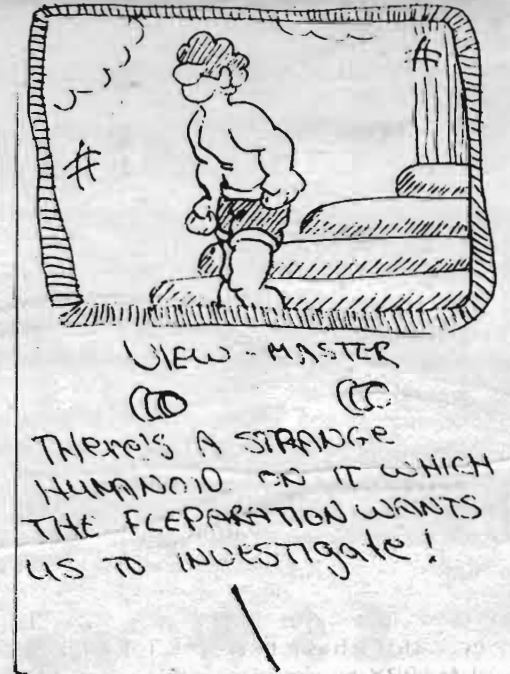 VIEW-MASTER
THERE'S A STRANGE
HUMANOID ON IT WHICH
THE FLEPARATION WANTS
US TO INVESTIGATE!